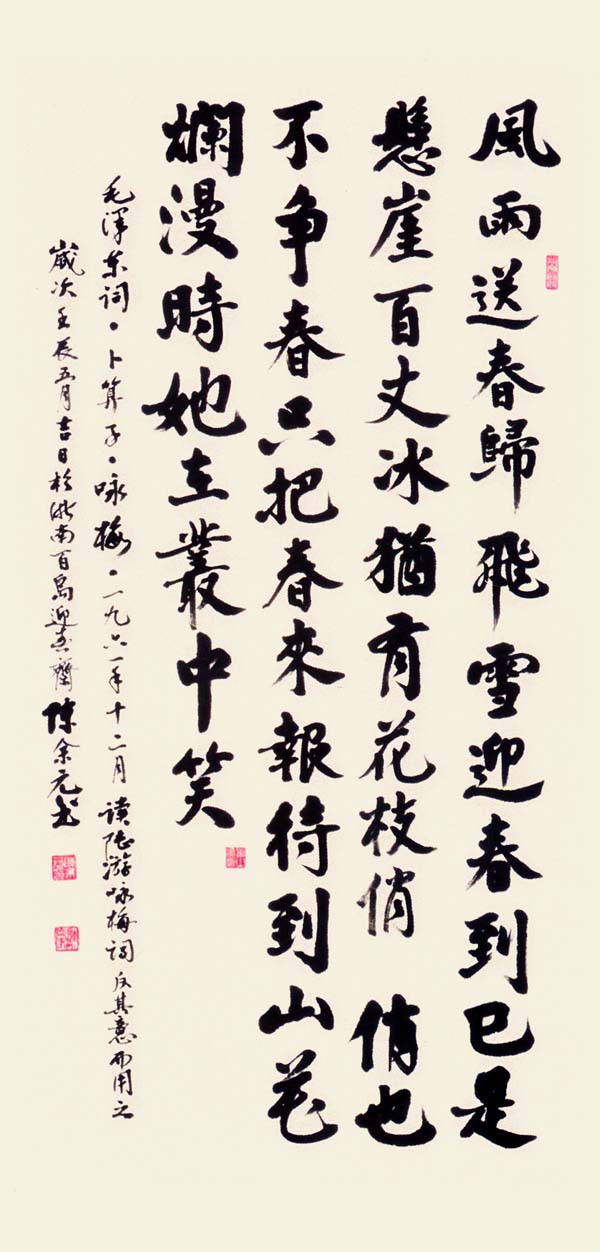 風雨送春歸 飛雪迎春到已是
懸崖百丈冰猶有花枝俏 俏也
不争春只把春來報待到山花
爛漫時她在叢中笑
毛澤东词·卜算子·咏梅·一九六一年十二月 读陆游咏梅词反其意而用之
歲次壬辰五月吉日於浙南百岛迎齋陳余元书